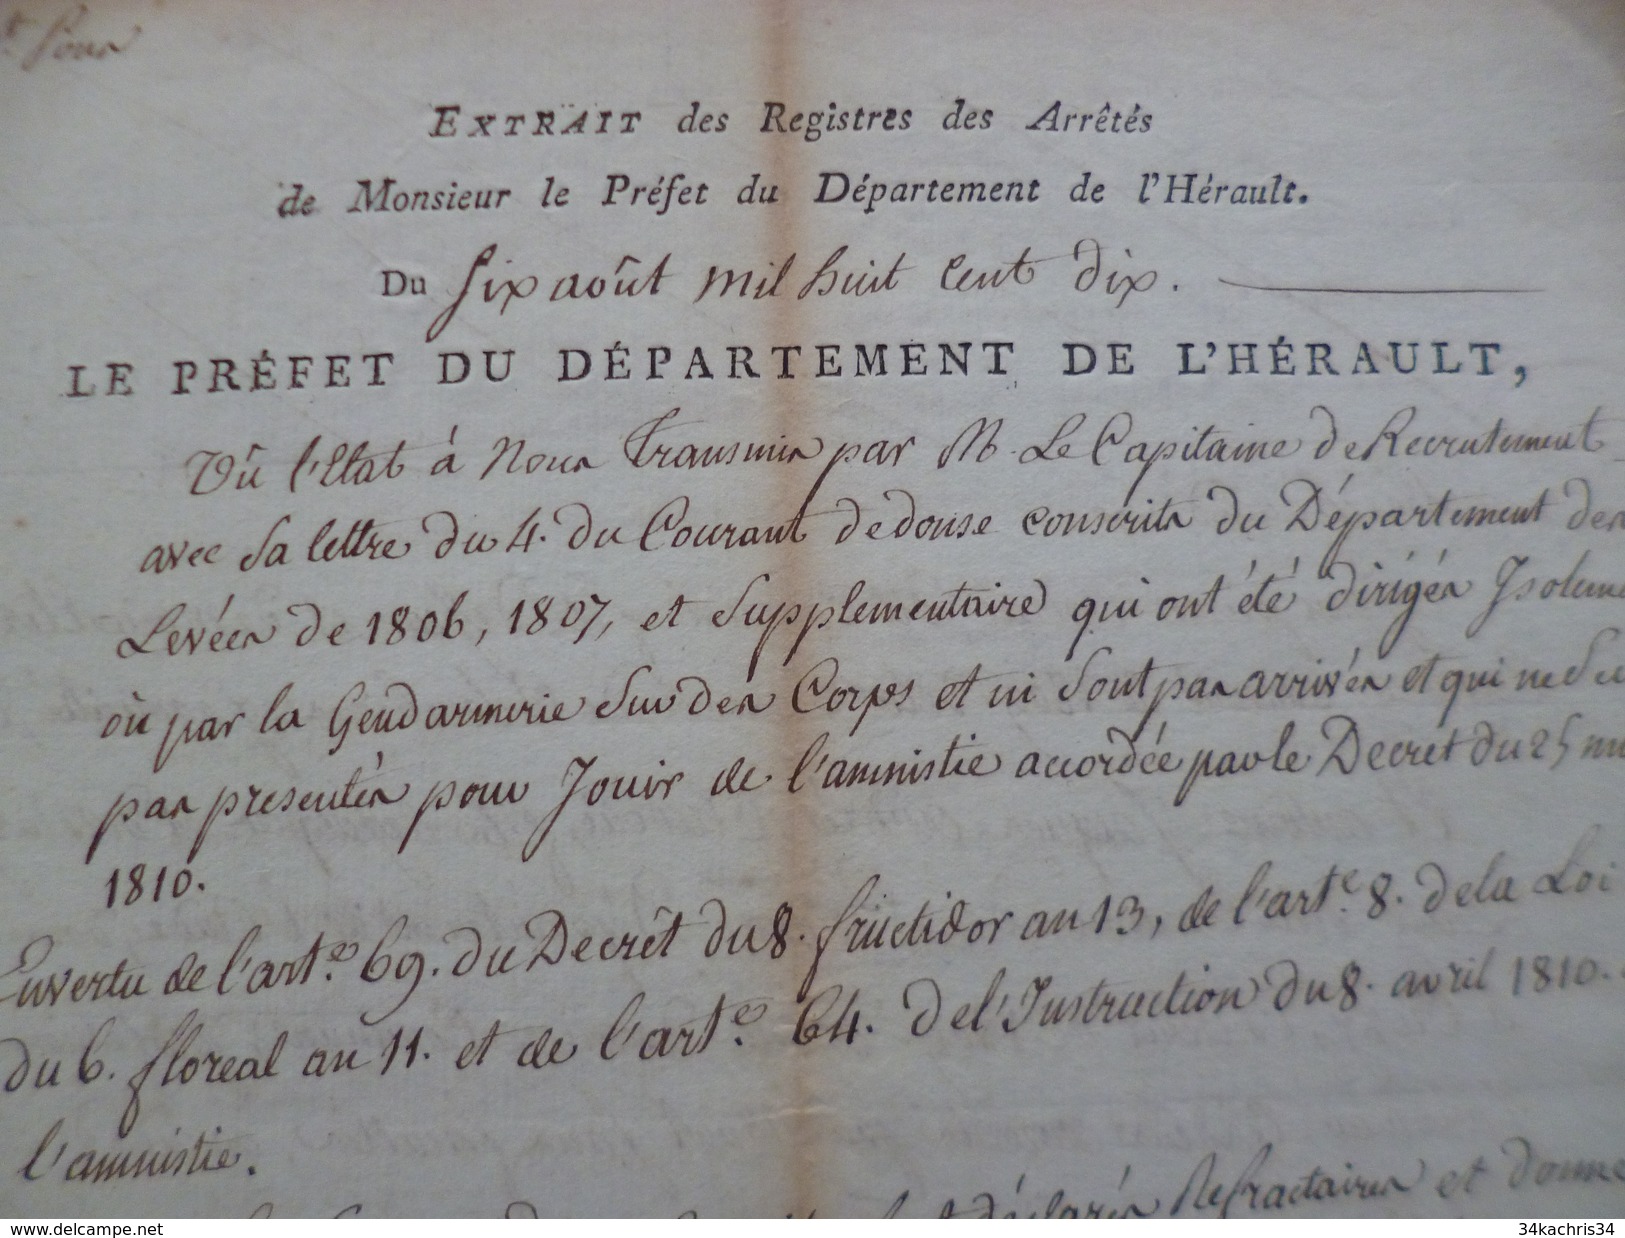 Pour
EXTRAIT des Registres des Arrêtés
de Monsieur le Préfet du Département de l'Hérault.
Du Six août mil huit cent dix.
LE PRÉFET DU DÉPARTEMENT DE L'HÉRAULT,
Vû l'Etat à Nous Transmis par M. Le Capitaine de Recrutement
avec Sa lettre du 4. du Courant de douse conscrits du Département des
Levées de 1806, 1807, et Supplementaire qui ont été dirigés Isoleme
où par la Gendarmerie Sur des Corps et ni Sont pas arrivés et qui ne Se
pas presentés pour Jouir de l'amnistie accordée par le Decret du 25
1810.
En vertu de l'art.e 69. du Decrêt du 8. fructidor an 13, de l'art.e 8. de la Loi
du 6. floreal an 11. et de l'art.e 64. de l'Instruction du 8. avril 1810.
l'amnistie.
déclarés Refractaires et donne
www.delcampe.net
34kachris34